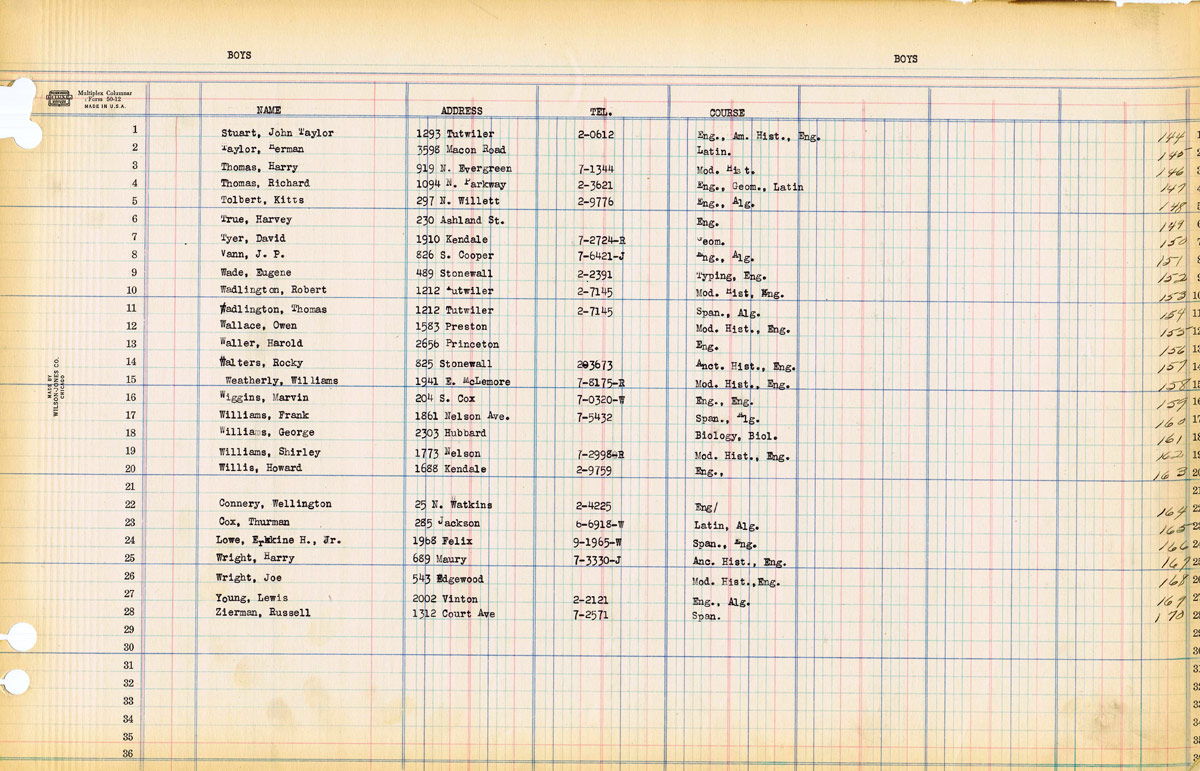 BOYS BOYS
Multiplex Columnar
Form 50-12
MADE IN U.S.A.
NAME ADDRESS TEL. COURSE
1 Stuart, John Taylor 1293 Tutwiler 2-0612 Eng., Am. Hist., Eng. 144
2 Taylor, Herman 3598 Macon Road Latin. 145 2
3 Thomas, Harry 919 N. Evergreen 7-1344 Mod. Hist. 146 3
4 Thomas, Richard 1094 N. Parkway 2-3621 Eng., Geom., Latin 147
5 Tolbert, Kitts 297 N. Willett 2-9776 Eng., Alg. 148 5
6 True, Harvey 230 Ashland St. Eng. 149 6
7 Tyer, David 1910 Kendale 7-2724-R Geom. 150 7
8 Vann, J. P. 826 S. Cooper 7-6421-J Eng., Alg. 151 8
9 Wade, Eugene 489 Stonewall 2-2391 Typing, Eng. 152 9
10 Wadlington, Robert 1212 Tutwiler 2-7145 Mod. Hist, Eng. 153 10
11 Wadlington, Thomas 1212 Tutwiler 2-7145 Span., Alg. 154 11
12 Wallace, Owen 1583 Preston Mod. Hist., Eng. 155 12
13 Waller, Harold 2656 Princeton Eng. 156 13
14 Walters, Rocky 825 Stonewall 203673 Anct. Hist., Eng. 157 14
15 Weatherly, Williams 1941 E. McLemore 7-8175-R Mod. Hist., Eng. 158 15
16 Wiggins, Marvin 204 S. Cox 7-0320-W Eng., Eng. 159 16
17 Williams, Frank 1861 Nelson Ave. 7-5432 Span., Alg. 160 17
18 Williams, George 2303 Hubbard Biology, Biol. 161 18
19 Williams, Shirley 1773 Nelson 7-2998-R Mod. Hist., Eng. 162 19
20 Willis, Howard 1688 Kendale 2-9759 Eng., 163 20
21 21
22 Connery, Wellington 25 N. Watkins 2-4225 Eng/ 164 22
23 Cox, Thurman 285 Jackson 6-6918-W Latin, Alg. 165 23
24 Lowe, Erskine H., Jr. 1968 Felix 9-1965-W Span., Eng. 166 24
25 Wright, Harry 689 Maury 7-3330-J Anc. Hist., Eng. 167 25
26 Wright, Joe 543 Edgewood Mod. Hist.,Eng. 168 26
27 Young, Lewis 2002 Vinton 2-2121 Eng., Alg. 169 27
28 Zierman, Russell 1312 Court Ave 7-2571 Span. 170 28
29 29
30 30
31 31
32 32
33 33
34 34
35 35
36 36
MADE BY
WILSON-JONES CO.
CHICAGO